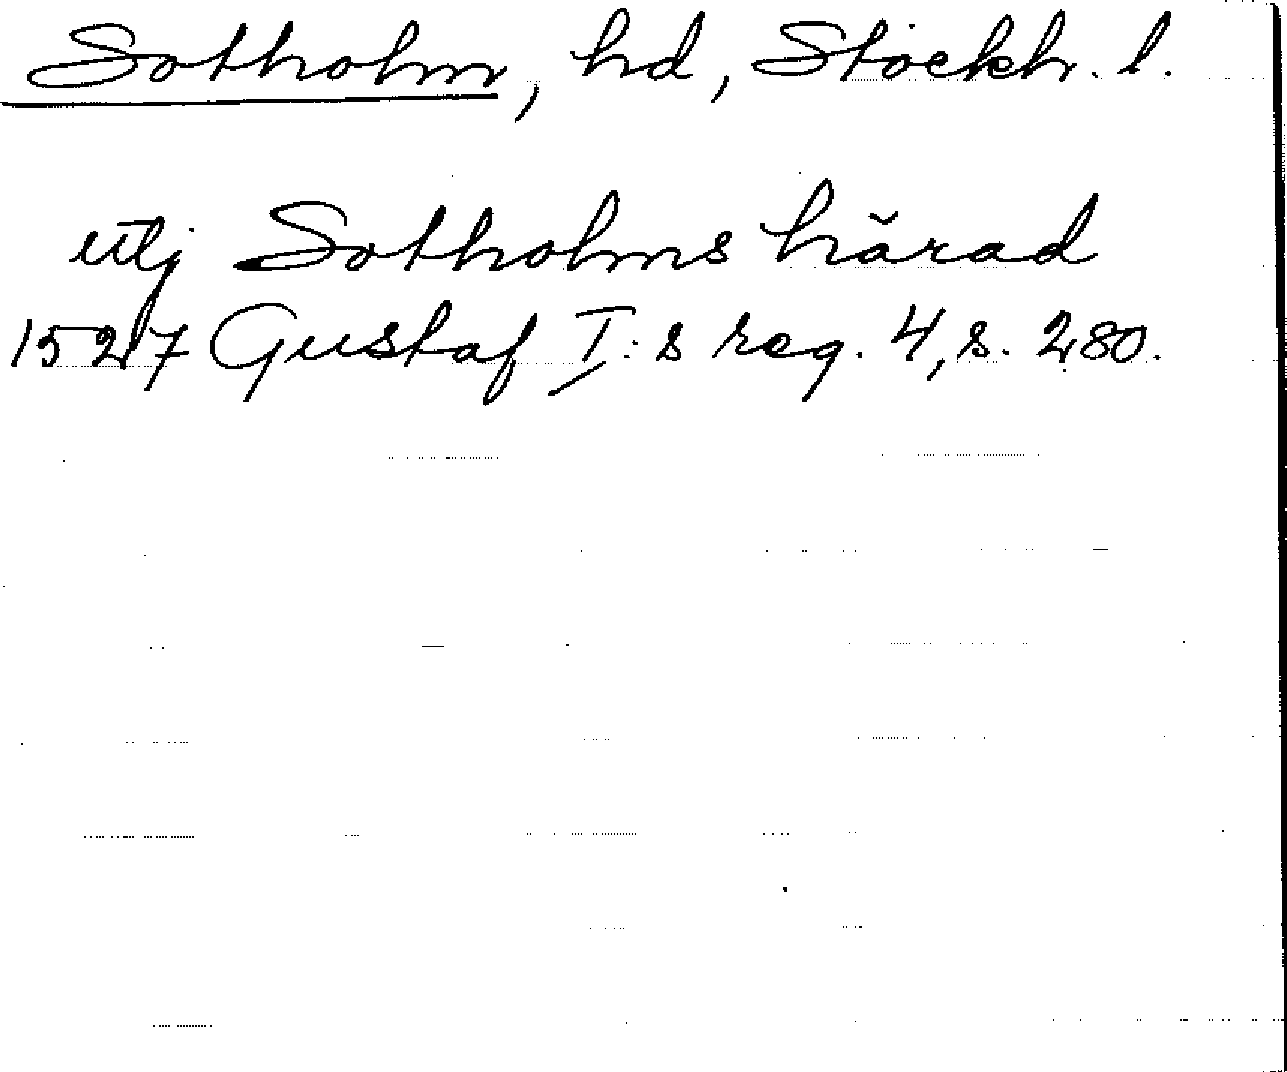 Sotholm, hd, Stockh. l.
utj Sotholms härad
1527 Gustaf I:s reg. 4, s. 280.